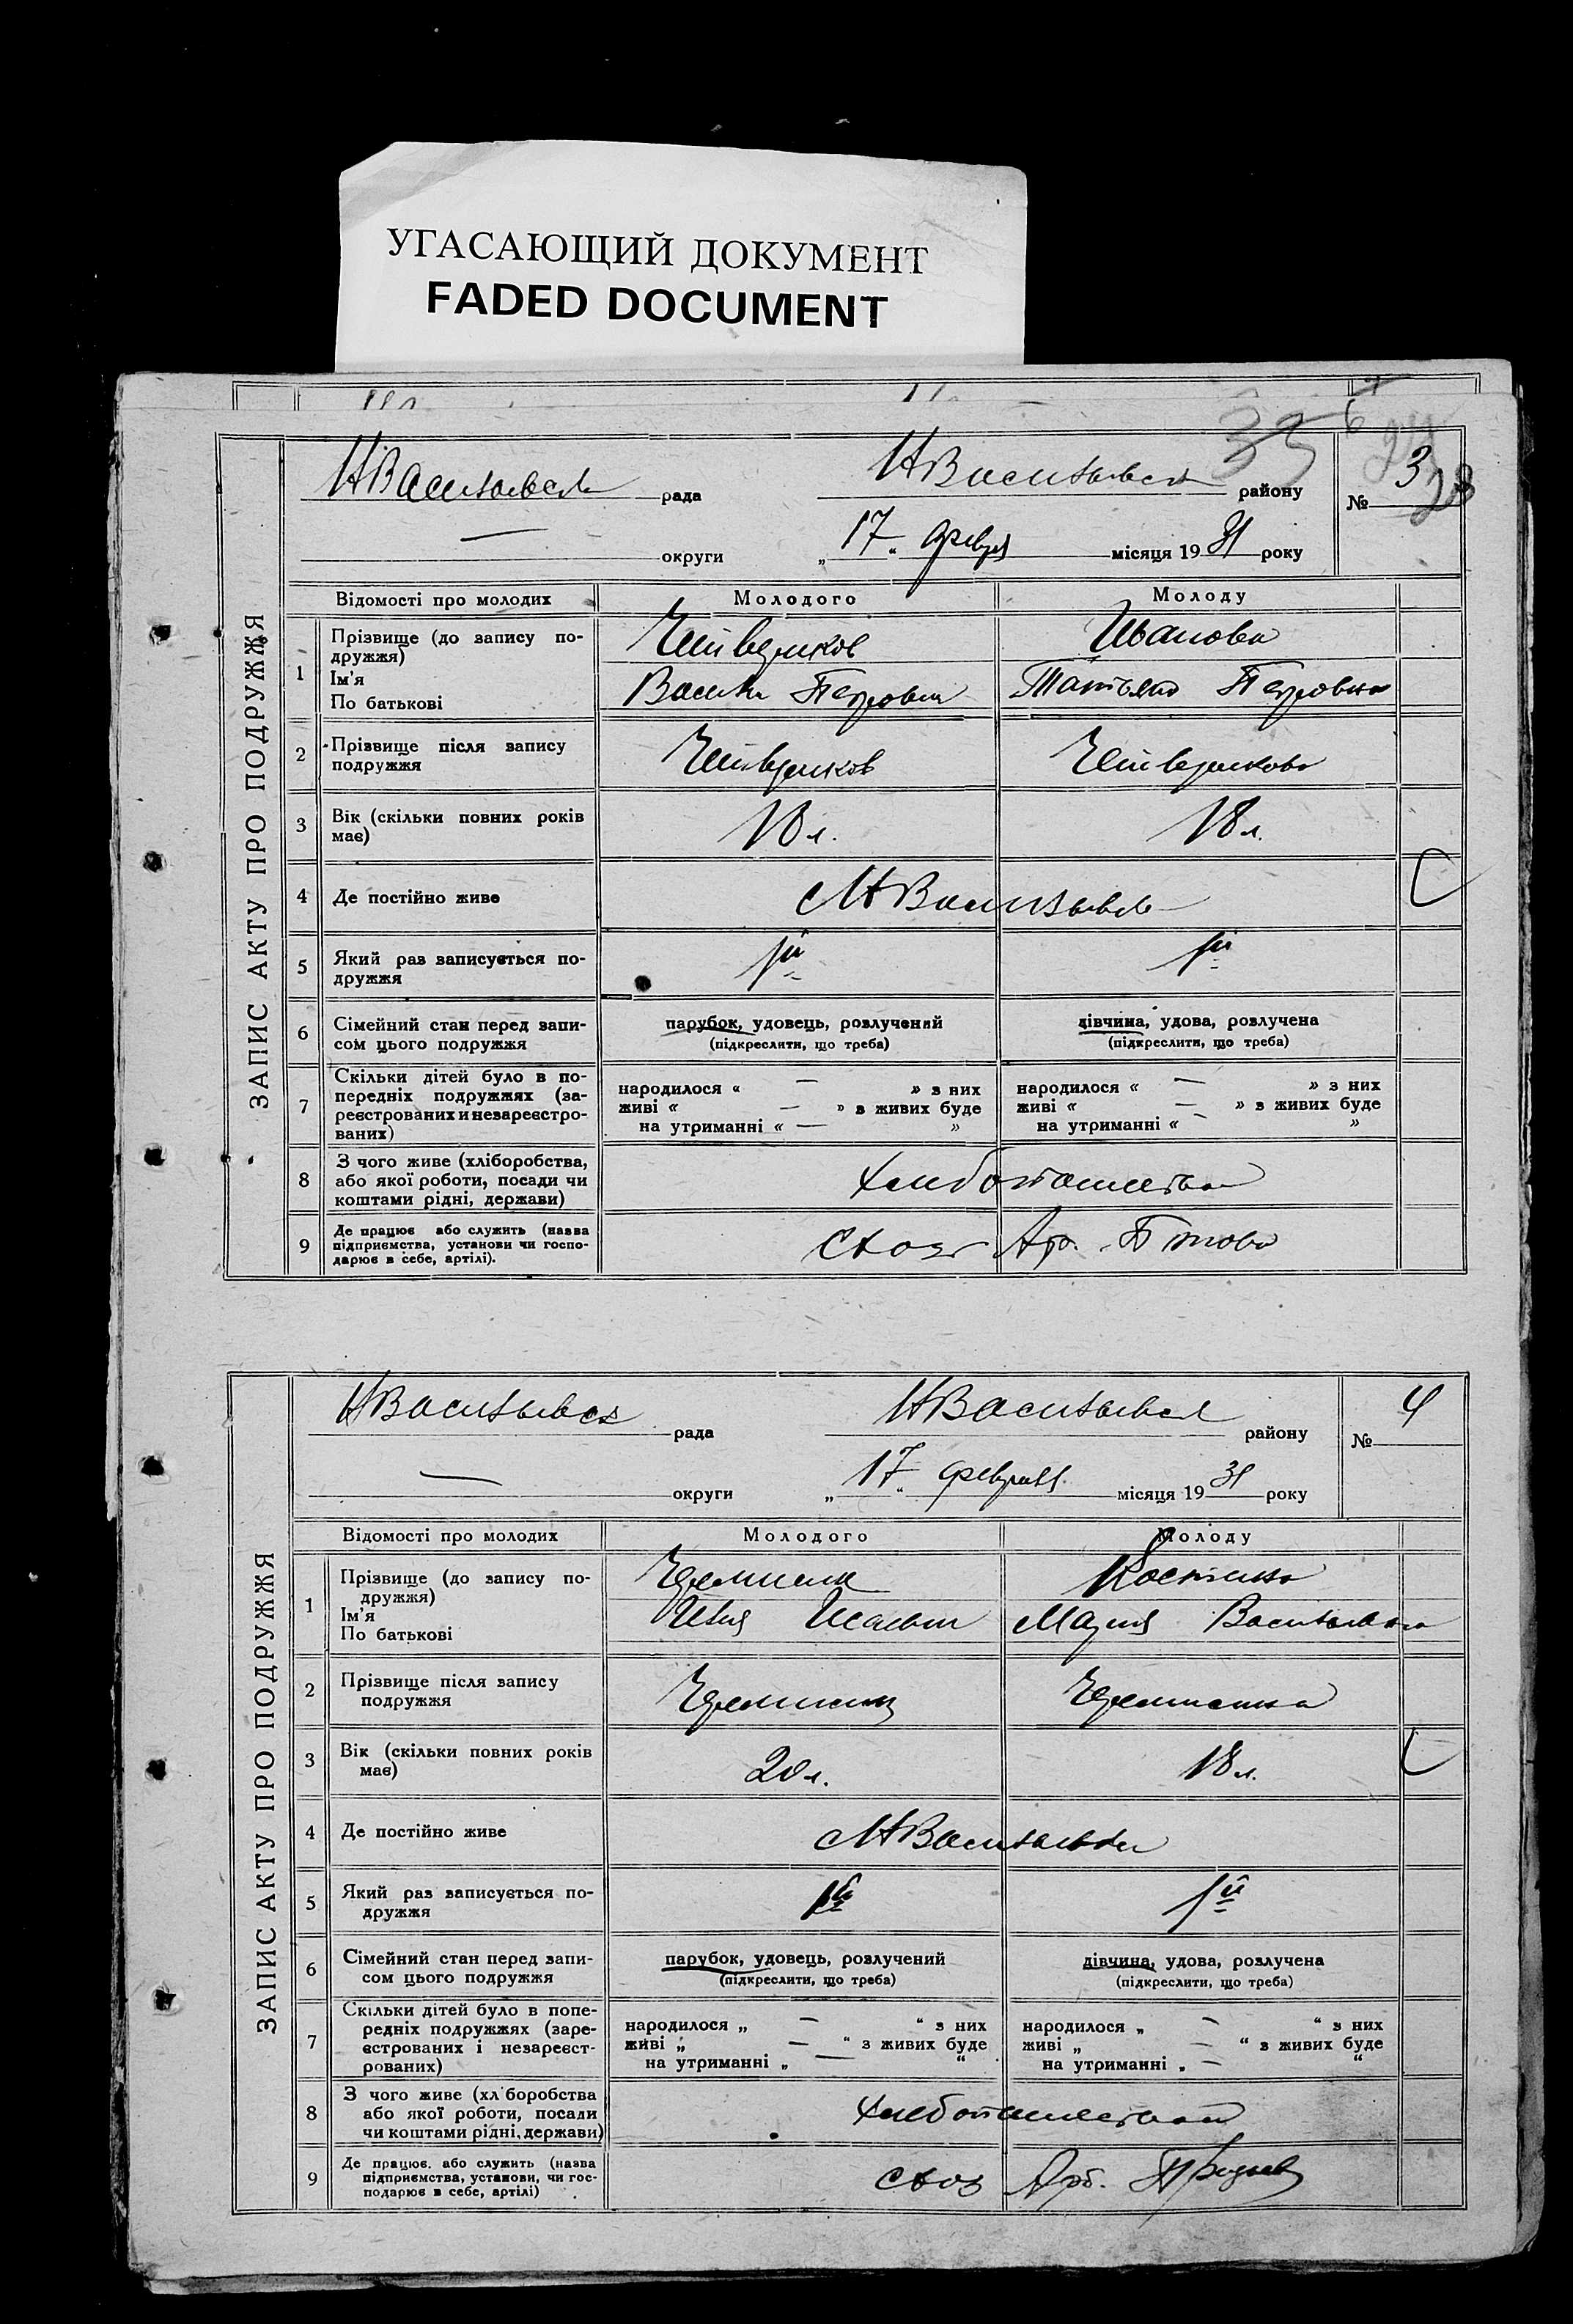 УГАСАЮЩИЙ ДОКУМЕНТ
FADED DOCUMENT
ЗАПИС АКТУ ПРО ПОДРУЖЖЯ
НВасильевск рада
НВасильевск району
№ 3
— округи
„17“ февр місяця 1931 року
Відомості про молодих
Молодого
Молоду
1
Прізвище (до запису по-
дружжя)
Ім'я
По батькові
Четвериков
Василь Петрович
Иванова
Татьяна Петровна
2
Прізвище після запису
подружжя
Четвериков
Четверикова
3
Вік (скільки повних років
має)
18 л.
18 л.
4
Де постійно живе
НВасильевк
5
Який раз записується по-
дружжя
1й
1й
6
Сімейний стан перед запи-
сом цього подружжя
парубок, удовець, розлучений
(підкреслити, що треба)
дівчина, удова, розлучена
(підкреслити, що треба)
7
Скільки дітей було в по-
передніх подружжях (за-
реєстрованих и незареєстро-
ваних)
народилося « — » з них
живі « — » в живих буде
на утриманні « — »
народилося « — » з них
живі « — » в живих буде
на утриманні « — »
8
З чого живе (хліборобства,
або якої роботи, посади чи
коштами рідні, держави)
хлебопашество
9
Де працює або служить (назва
підприємства, установи чи госпо-
дарює в себе, артілі).
ЗАПИС АКТУ ПРО ПОДРУЖЖЯ
НВасильевск рада
НВасильевск району
№ 4
— округи
„17“ февраля місяця 1931 року
Відомості про молодих
Молодого
Молоду
1
Прізвище (до запису по-
дружжя)
Ім'я
По батькові
Илья
Мария Васильевна
2
Прізвище після запису
подружжя
3
Вік (скільки повних років
має)
20 л.
18 л.
4
Де постійно живе
НВасильевк
5
Який раз записується по-
дружжя
1й
1й
6
Сімейний стан перед запи-
сом цього подружжя
парубок, удовець, розлучений
(підкреслити, що треба)
дівчина, удова, розлучена
(підкреслити, що треба)
7
Скільки дітей було в попе-
редніх подружжях (заре-
єстрованих і незареєст-
рованих)
народилося „ — “ з них
живі „ — “ з живих буде
на утриманні „ — “
народилося „ — “ з них
живі „ — “ з живих буде
на утриманні „ — “
8
З чого живе (хліборобства
або якої роботи, посади
чи коштами рідні, держави)
хлебопашеством
9
Де працює, або служить (назва
підприємства, установи, чи гос-
подарює в себе, артілі)